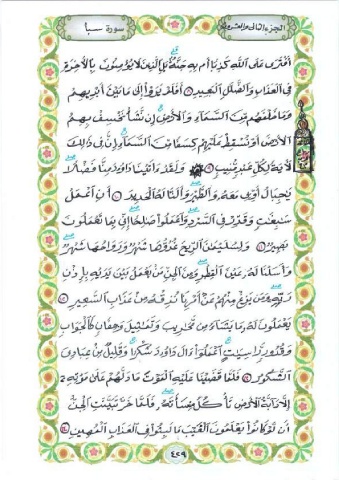 الجزء الثاني والعشرون
سورة سبأ
افترى على الله كذبا أم به جنة بل الذين لا يؤمنون بالآخرة
في العذاب والضلل البعيد أفلم يروا إلى ما بين أيديهم
وما خلفهم من السماء والأرض إن نشأ نخسف بهم
الأرض أو نسقط عليهم كسفا من السماء إن في ذلك
لآية لكل عبد منيب ولقد ءاتينا داود منا فضلا
يجبال أوبي معه والطير وألنا له الحديد أن اعمل
سبغت وقدر في السرد واعملوا صلحا إني بما تعملون
بصير ولسليمن الريح غدوها شهر ورواحها شهر
وأسلنا له عين القطر ومن الجن من يعمل بين يديه بإذن
ربه ومن يزغ منهم عن أمرنا نذقه من عذاب السعير
يعملون له ما يشاء من محريب وتمثيل وجفان كالجواب
وقدور راسيت اعملوا ءال داود شكرا وقليل من عبادي
الشكور فلما قضينا عليه الموت ما دلهم على موته
إلا دابة الأرض تأكل منسأته فلما خر تبينت الجن
أن لو كانوا يعلمون الغيب ما لبثوا في العذاب المهين
٤٢٩